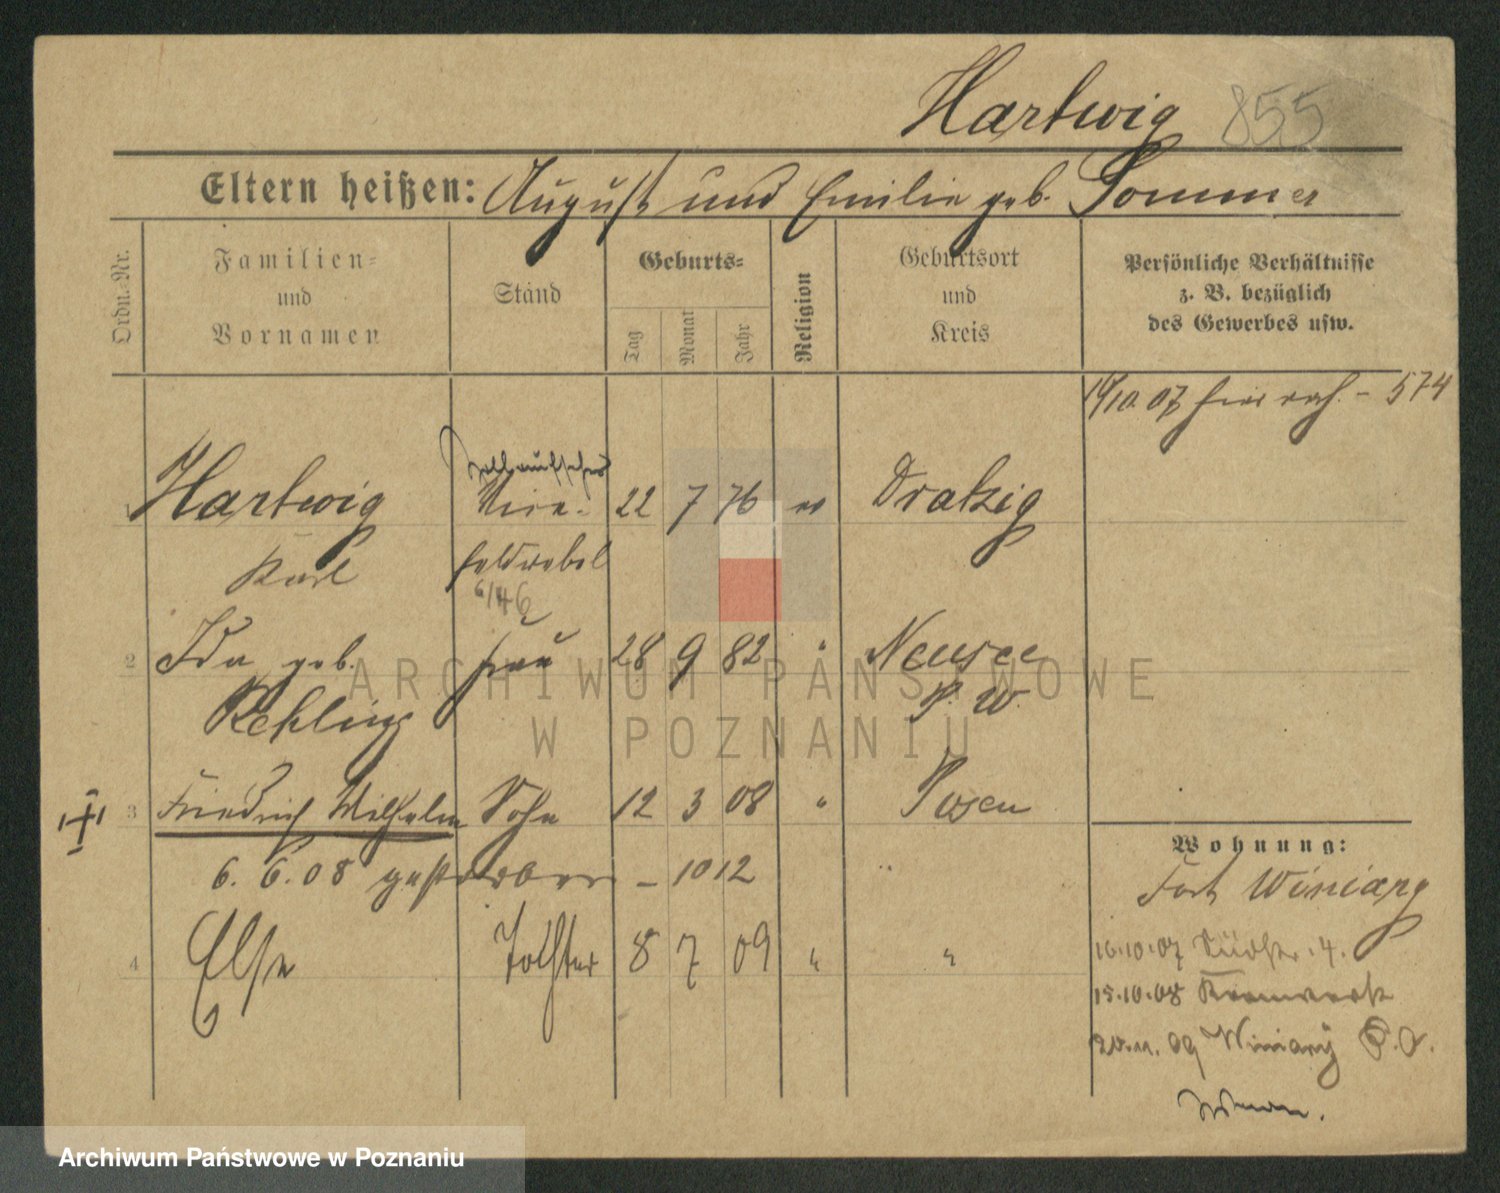 Hartwig 855
Eltern heißen: August und Emilie geb. Sommer
Ordn.-Nr.
Familien-
und
Vornamen
Stand
Geburts-
Tag
Monat
Jahr
Religion
Geburtsort
und
Kreis
Persönliche Verhältnisse
z. B. bezüglich
des Gewerbes usw.
10.07 574
1 Hartwig Vize- 22 7 76 ev Dratzig
Karl feldwebel
6/46
2 Ida geb. Frau 28 9 82 " Neusee
Rehling P. W.
3 Friedrich Wilhelm Sohn 12 3 08 " Posen
6. 6. 08 gestorben - 1012
4 Else Tochter 8 7 09 " "
Wohnung:
Fort Winiary
16.10.07 Südstr. 4.
15.10.08 Kernwerk
20.11.09 Winiary
ARCHIWUM PAŃSTWOWE
W POZNANIU
Archiwum Państwowe w Poznaniu